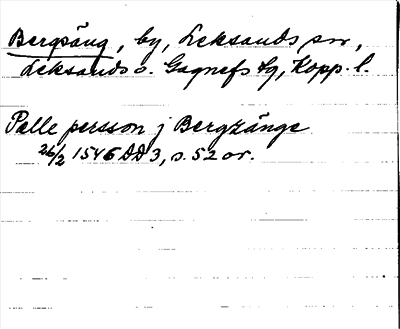 Bergsäng, by, Leksands sn,
Leksands o. Gagnefs tg, Kopp. l.
Palle persson j Bergzänge
26/2 1546 DD3, s. 52 or.